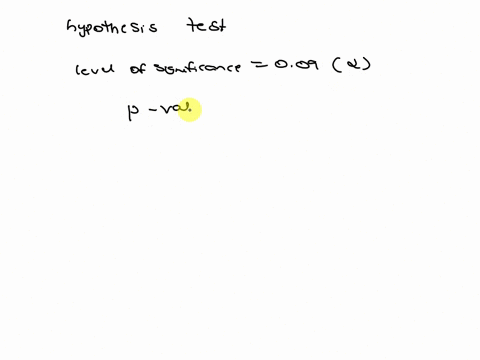 hypothesis test
level of significance = 0.09 (α)
p - val